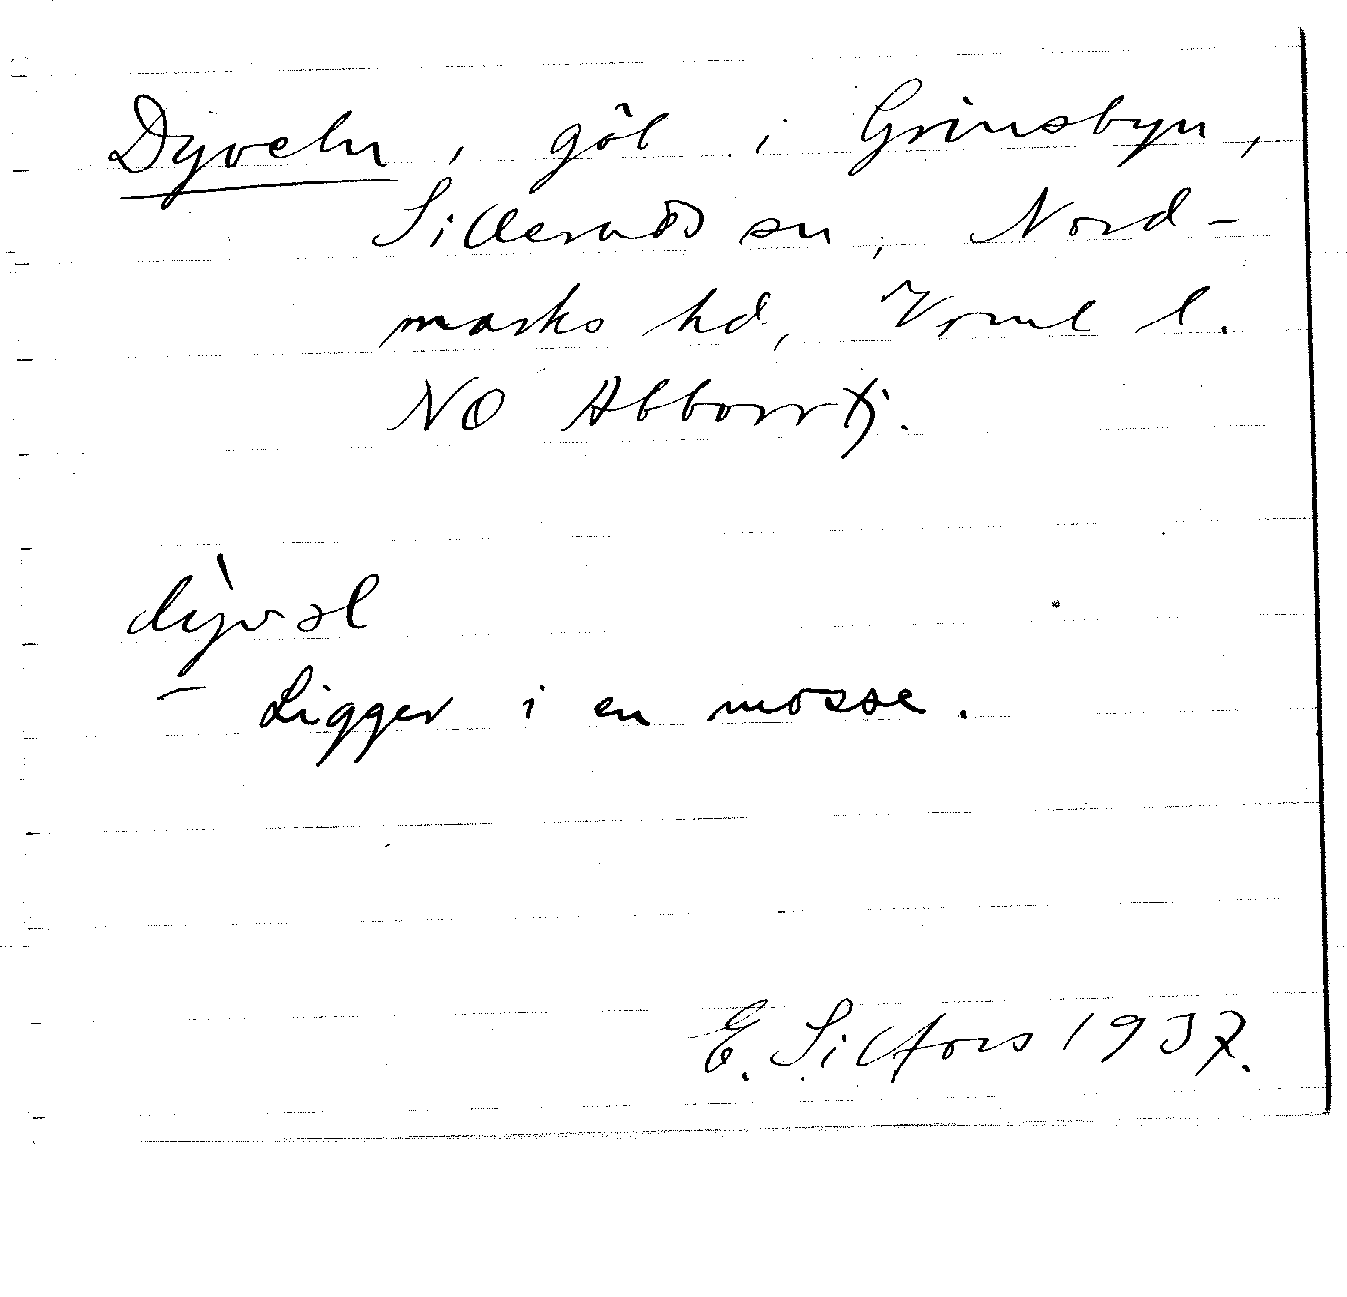 Dyveln, göl i Grinsbyn,
Silleruds sn, Nord-
marks hd, Vrml l.
NO Abborrtj.
dỳvəl
– Ligger i en mosse.
E. Silfors 1937.